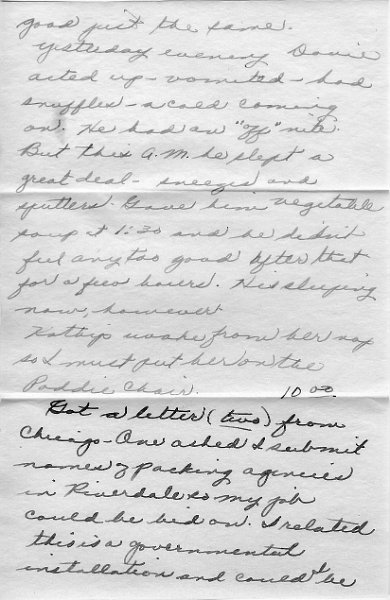 good just the same.
Yesterday evening Davie
acted up - vomited - had
snuffles - a cold coming
on. He had an "off" nite.
But this A.M. he slept a
great deal - sneezes and
sputters. Gave him vegetable
soup at 1:30 and he didn't
feel any too good after that
for a few hours. His sleeping
now, however
Kathy woke from her nap
so I must put her on the
Poddie Chair. 10 00
Got a letter (two) from
Chicago - One asked I submit
names of packing agencies
in Riverdale so my job
could be bid on. I related
this is a governmental
installation and could be